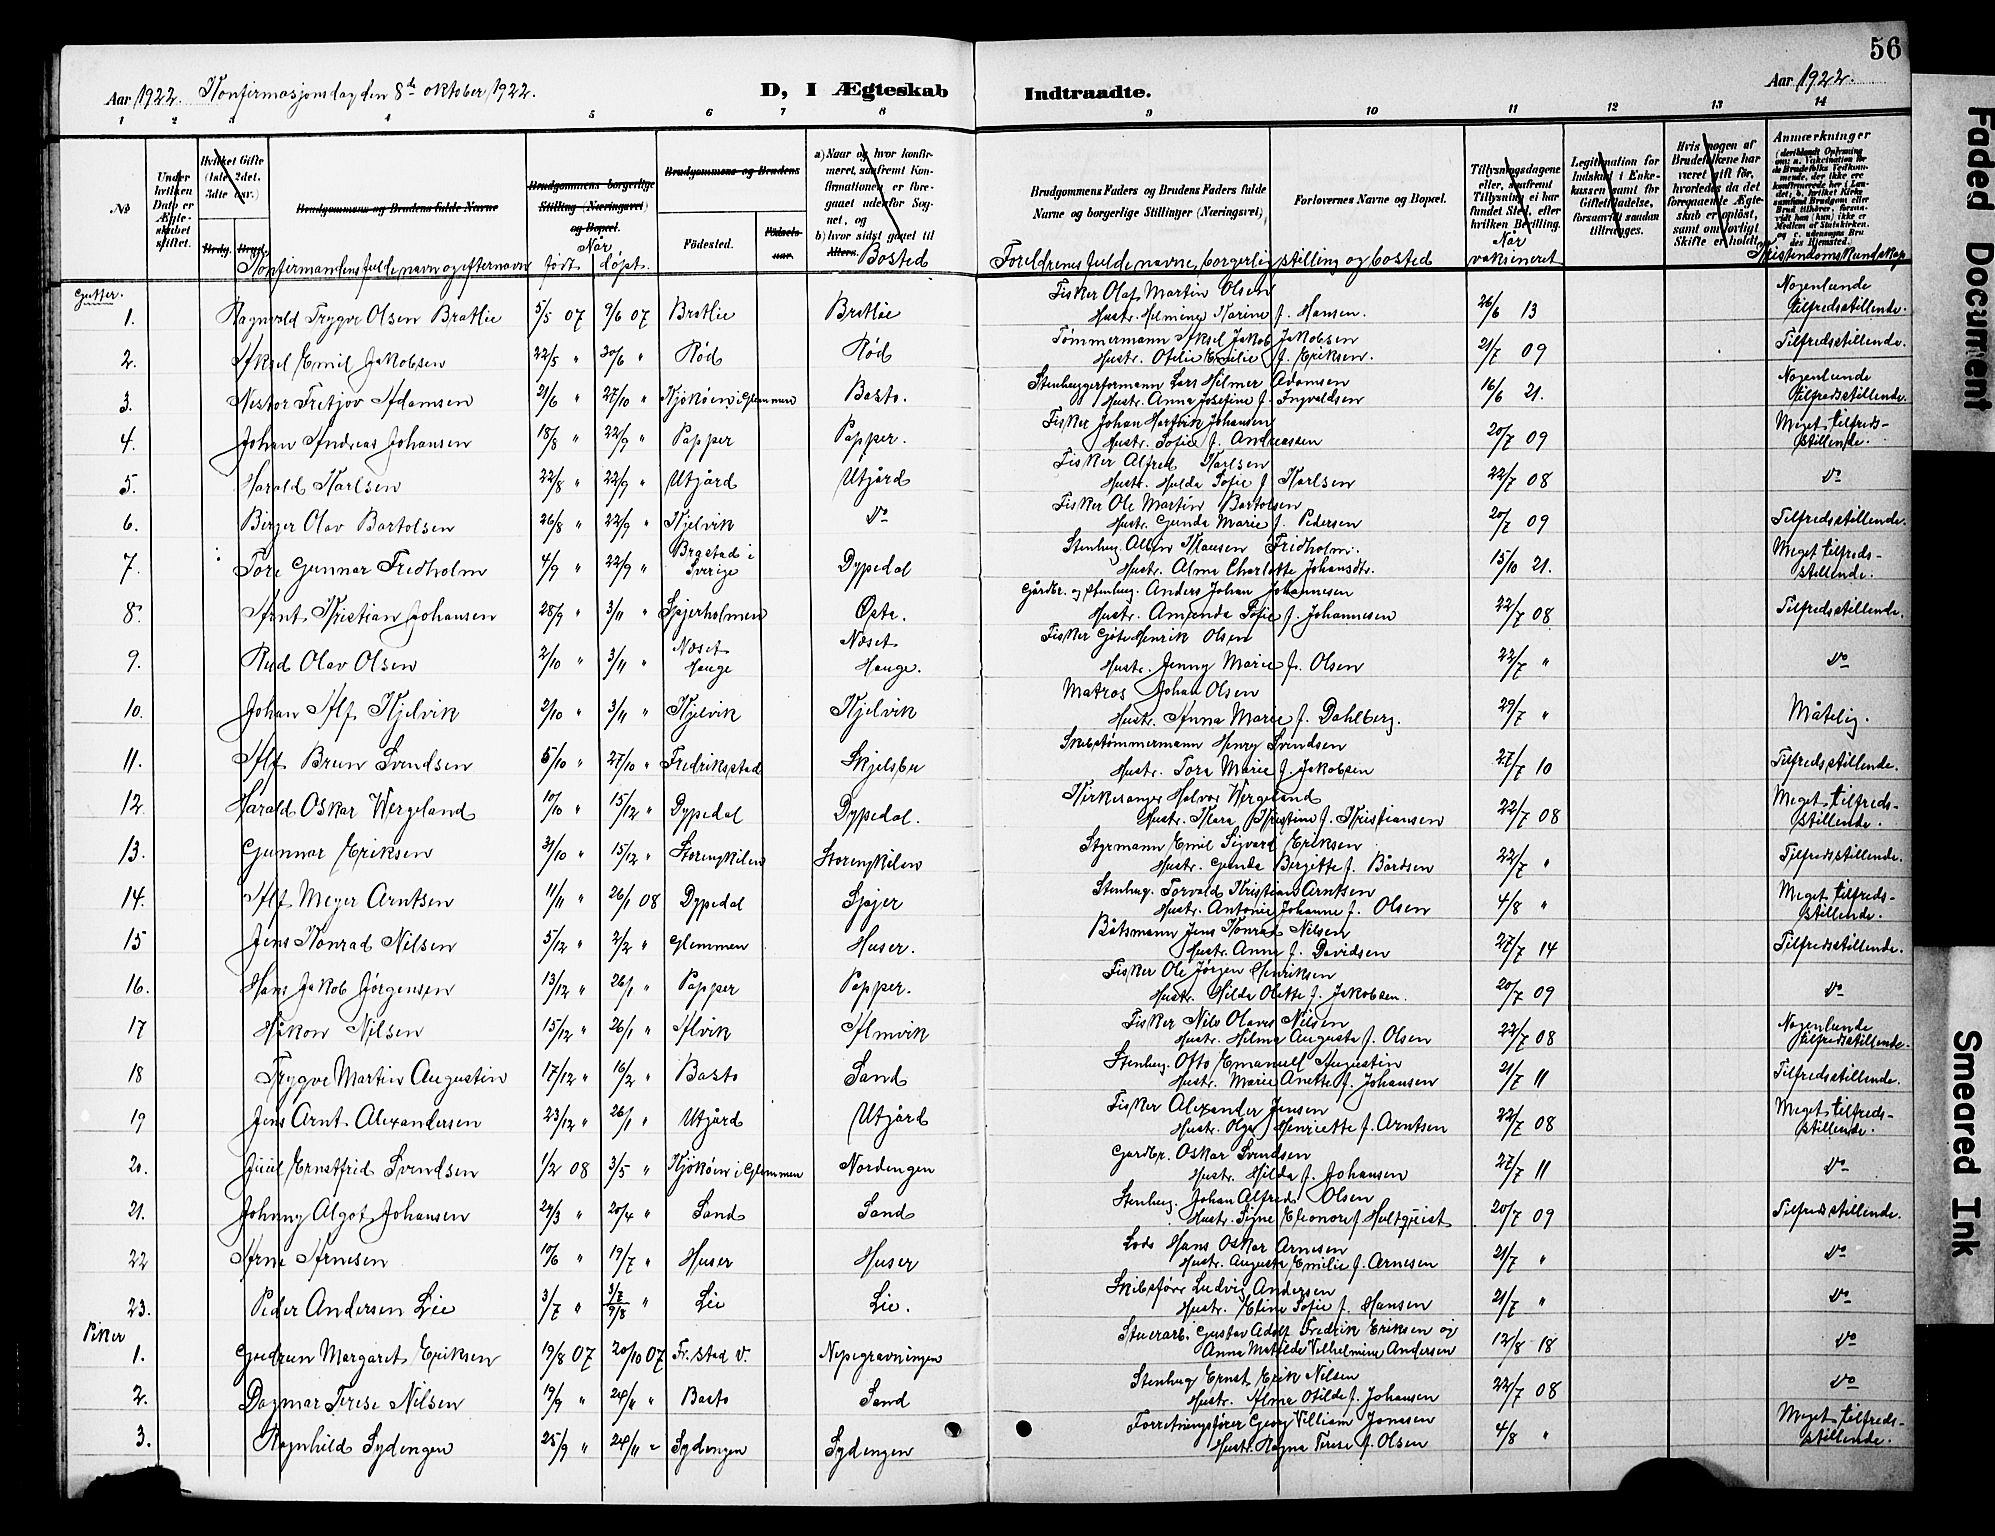 56
Aar 1922. Konfirmasjonsdag den 8de oktober 1922. D, I Ægteskab Indtraadte. Aar 1922.
1 2 3 4 5 6 7 8 9 10 11 12 13 14
No Under hvilken Dato er Ægteskabet stiftet. Hvilket Gifte (1ste, 2det, 3die osv.) Brudg. Brud. Brudgommens og Brudens fulde Navne Brudgommens borgerlige Stilling (Næringsvei) og Bopæl. Brudgommens og Brudens Födested. Födselsaar. a) Naar og hvor konfirmeret, samt om Konfirmationen er foregaaet udenfor Sognet, og b) hvor sidst gaaet til Alters. Brudgommens Faders og Brudens Faders fulde Navne og borgerlige Stillinger (Næringsvei), Forlovernes Navne og Bopæl.
Konfirmandens fulde navn og efternavn Når født døpt. Bosted Foreldrenes fulde navne, borgerlig stilling og bosted Når vaksineret Kristendomskundskap
Gutter.
1. Ragnvald Trygve Olsen Bratlie 5/5 07 9/6 07 Bratlie Bratlie Fisker Olaf Martin Olsen Hustr. Hilmine Marine f. Hansen. 26/6 13 Nogenlunde tilfredsstillende.
2. Aksel Emil Jakobsen 22/5 " 30/6 " Rød Rød Tømmermann Aksel Jakob Jakobsen Hustr. Otelie Emilie f. Eriksen. 21/7 09 Tilfredsstillende.
3. Nestor Fretjov Adamsen 21/6 " 27/10 " Kjøkøen i Glemmen Basto. Stenhuggerformann Lars Hilmer Adamsen Hustr. Anna Josefine f. Ingvaldsen 16/6 21. Nogenlunde tilfredsstillende.
4. Johan Andreas Johansen 18/8 " 22/9 " Papper Papper. Fisker Johan Hartvik Johansen Hustr. Sofie f. Andreassen 20/7 09 Meget tilfredsstillende.
5. Harald Karlsen 22/8 " 22/9 " Utgård Utgård Fisker Alfred Karlsen Hustr. Hulda Sofie f. Karlsen 22/7 08 do
6. Birger Olav Bartolsen 26/8 " 22/9 " Kjelvik do Fisker Ole Martin Bartolsen Hustr. Gunda Marie f. Pedersen 20/7 09 Tilfredsstillende.
7. Tore Gunnar Fredholm 4/9 " 22/9 " Brastad i Sverige Dypedal Stenhug. Albin Klausen Fridholm. Hustr. Alma Charlotte Johansdtr. 15/10 21. Meget tilfredsstillende.
8. Arnt Kristian Johansen 28/9 " 3/11 " Spjerholmen Østa. Gårdbr. og stenhug. Anders Johan Johannesen Hustr. Amanda Sofie f. Johannesen 22/7 08. Tilfredsstillende.
9. Rud Olav Olsen 2/10 " 3/11 " Næset Hauge Næset Hauge. Fisker Gøte Henrik Olsen Hustr. Jenny Marie f. Olsen 22/7 " do
10. Johan Alf Kjelvik 2/10 " 3/11 " Kjelvik Kjelvik Matros Johan Olsen Hustr. Anna Marie f. Dahlberg. 29/7 " Måtelig.
11. Alf Brun Svendsen 5/10 " 27/10 " Fredriksstad Skjelsbu Skibstømmermann Henry Svendsen Hustr. Tora Marie f. Jakobsen 27/7 10 Tilfredsstillende.
12. Harald Oskar Wergeland 10/10 " 15/12 " Dypedal Dypedal. Kirkesanger Halvor Wergeland Hustr. Klara Kristine f. Kristiansen 22/7 08 Meget tilfredsstillende.
13. Gunnar Eriksen 31/10 " 15/12 " Storengkilen Storengkilen Styrmann Emil Sigvard Eriksen Hustr. Gunda Bergitte f. Bårdsen 22/7 " Tilfredsstillende.
14. Alf Meyer Arntsen 11/11 " 26/1 08 Dypedal Spjer Stenhug. Torvald Kristian Arntsen Hustr. Antonie Johanne f. Olsen 4/8 " Meget tilfredsstillende.
15 Jens Konrad Nilsen 5/12 " 2/2 " Glemmen Huser. Båtsmann Jens Konrad Nilsen Hustr. Anna f. Davidsen 27/7 14 Tilfredsstillende.
16. Hans Jakob Jørgensen 13/12 " 26/1 " Papper Papper. Fisker Ole Jørgen Henriksen Hustr. Hilda Olette f. Jakobsen. 20/7 09 do
17 Håkon Nilsen 15/12 " 26/1 " Alvik Almvik Fisker Nils Olaves Nilsen Hustr. Hilma Augusta f. Olsen 22/7 08 Nogenlunde tilfredsstillende.
18 Trygve Martin Augustin 17/12 " 16/2 " Basto Sand Stenhug. Otto Emanuell Augustin Hustr. Marie Anette f. Johansen 21/7 11 Tilfredsstillende.
19 Jens Arnt Alexandersen 23/12 " 26/1 " Utgård Utgård Fisker Alexander Jensen Hustr. Olga Henriette f. Arntsen 22/7 08 Meget tilfredsstillende.
20. Juul Ernstfrid Svendsen 1/2 08 3/5 " Kjøkøen i Glemmen Nordengen Gardbr. Oskar Svendsen Hustr. Hilda f. Johansen 27/7 11 do
21. Johnny Algot Johansen 24/3 " 20/4 " Sand Sand Stenhug. Johan Alfred Olsen Hustr. Signe Eleonore f. Hultquist 20/7 09 Tilfredsstillende.
22 Arne Arnesen 10/6 " 19/7 " Huser Huser Lods Hans Oskar Arnesen Hustr. Augusta Emilie f. Arnesen 21/7 " do
23. Peder Andersen Lie 3/7 " 3/7 9/8 " Lie Lie. Skibsfører Ludvig Andersen Hustr. Eline Sofie f. Hansen 21/7 " do
Piker
1. Gudrun Margaret Eriksen 19/8 07 20/10 07 Fr.stad V. Nepegravningen Stuerarb. Gustav Adolf Fredrik Eriksen og Anna Matilde Vilhelmine Andersen 12/8 18 do
2. Dagmar Terese Nilsen 19/9 " 24/11 " Basto Sand Stenhug Ernst Erik Nilsen Hustr. Alma Otilde f. Johansen 22/7 08 do
3. Ragnhild Sydengen 25/9 " 24/11 " Sydengen Sydengen Forretningsfører Georg Villiam Jonsen Hustr. Ragna Terese f. Olsen 4/8 " Meget tilfredsstillende.
Faded Document
Smeared Ink